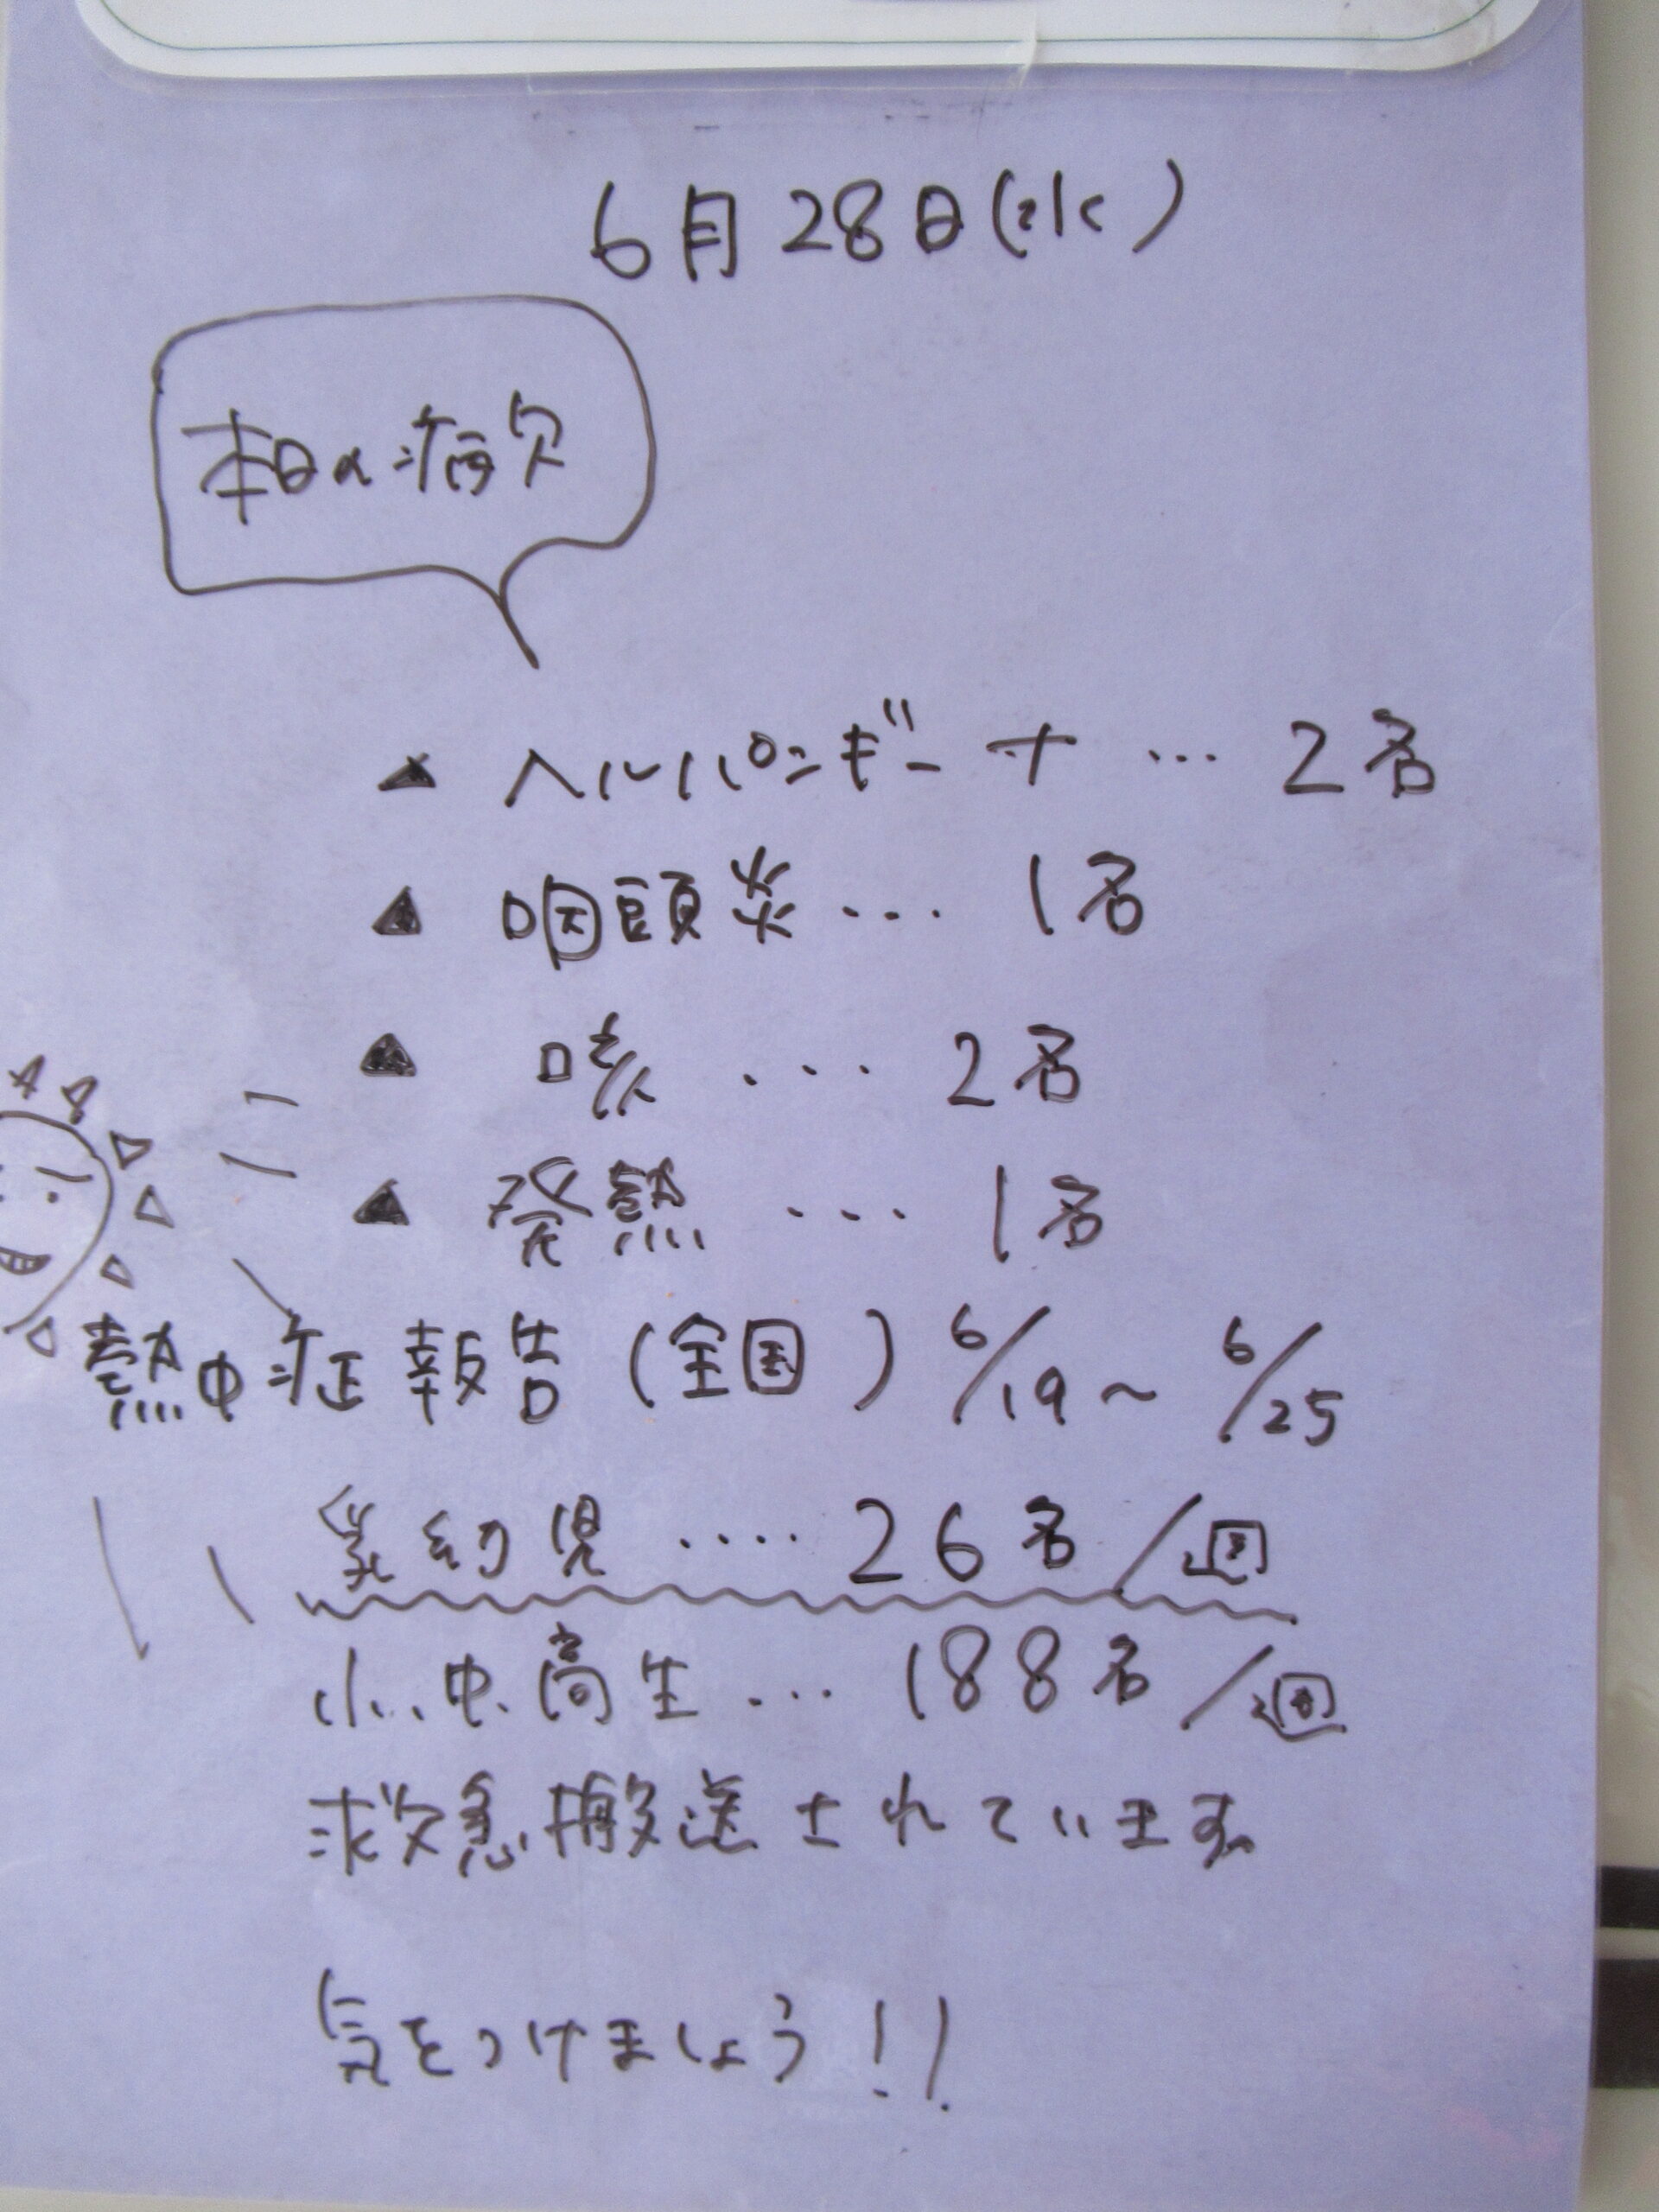 6月28日(水)
本日の病欠
▲ ヘルパンギーナ … 2名
▲ 咽頭炎 … 1名
▲ 咳 … 2名
▲ 発熱 … 1名
熱中症報告(全国) 6/19~6/25
乳幼児 …. 26名/週
小.中.高生 … 188名/週
救急搬送されています。
気をつけましょう!!